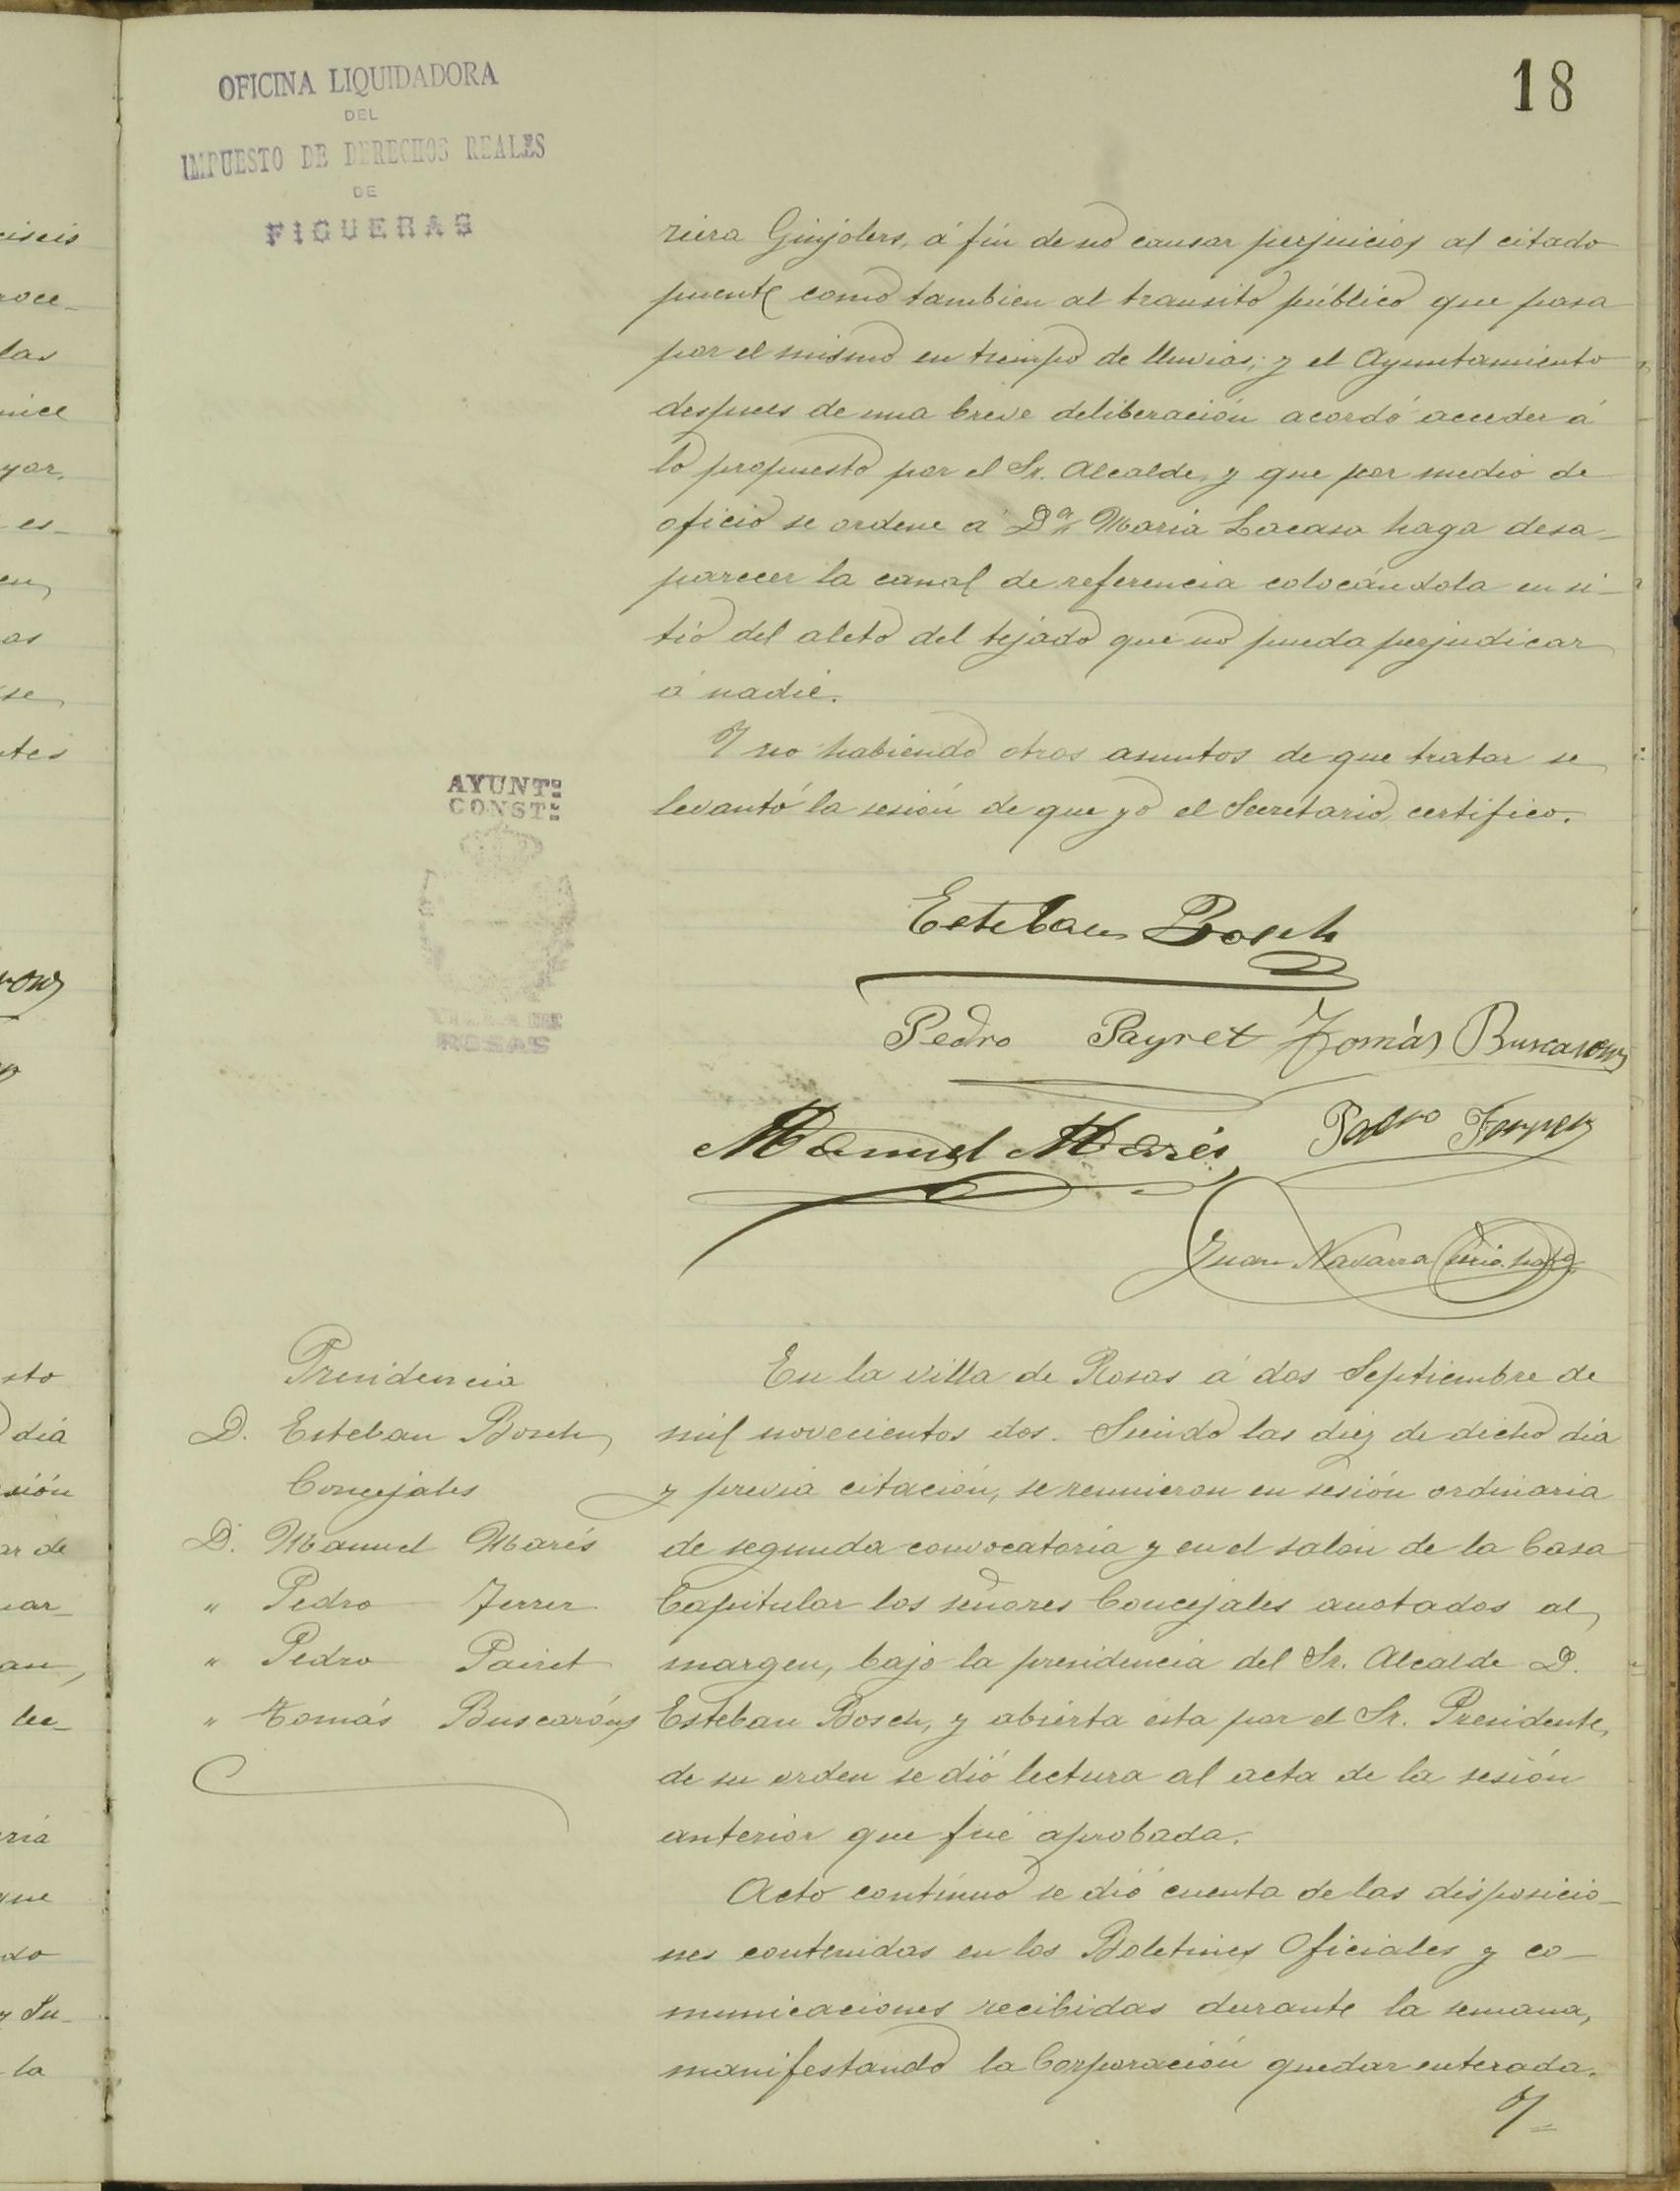 18
OFICINA LIQUIDADORA
DEL
IMPUESTO DE DERECHOS REALES
DE
FIGUERAS
riera Ginjolers, á fin de no causar perjuicios al citado
puente como tambien al transito público que pasa
por el mismo en tiempo de lluvias; y el Ayuntamiento
despues de una breve deliberación acordó acceder á
lo propuesto por el Sr. Alcalde, y que por medio de
oficio se ordene á Dª Maria Lacasa haga desa-
parecer la canal de referencia colocándola en si-
tio del aleto del tejado que no pueda perjudicar
á nadie.
Y no habiendo otros asuntos de que tratar se
levantó la sesión de que yo el Secretario, certifico.
AYUNTº
CONSTL
VILLA DE
ROSAS
Esteban Bosch
Pedro Payret Tomás Buscarons
Manuel Marés Pedro Ferrer
Juan Navarra Srio.
Presidencia
D. Esteban Bosch
Concejales
D. Manuel Marés
" Pedro Ferrer
" Pedro Pairet
" Tomás Buscaróns
En la villa de Rosas á dos Septiembre de
mil novecientos dos. Siendo las diez de dicho dia
y previa citación, se reunieron en sesión ordinaria
de segunda convocatoria y en el salón de la Casa
Capitular los señores Concejales anotados al
margen, bajo la presidencia del Sr. Alcalde D.
Esteban Bosch, y abierta ésta por el Sr. Presidente,
de su orden se dió lectura al acta de la sesión
anterior que fué aprobada.
Acto contínuo se dió cuenta de las disposicio-
nes contenidas en los Boletines Oficiales y co-
municaciones recibidas durante la semana,
manifestando la Corporación quedar enterada.
Y